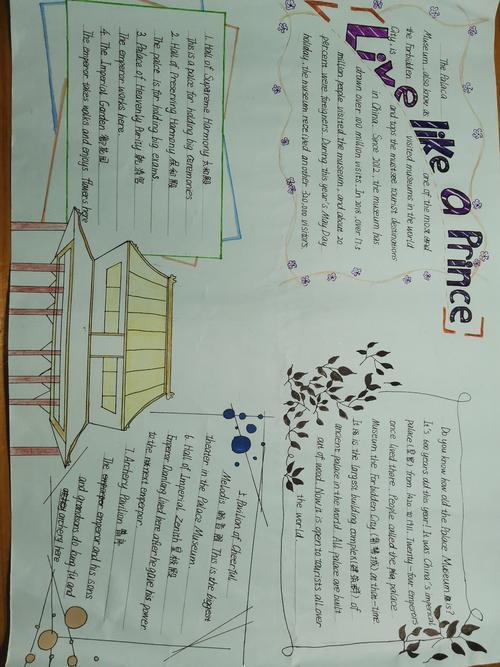 Live like a Prince
The Palace
Museum, also now as one of the most and
the Forbidden visited museums in the world
City, is and tops the most-set tourist destinations
in China. Since 2012, the museum has
drawn over 100 million visits. In 2018, over 17.5
million people visited the museum, and about 20
percent were foreigners. During this year's May Day
holiday, the museum received another 320,000 visitors.
Do you know how old the Palace Museum is?
It's 600 years old this year! It was China's imperial
palace(皇宫) from 1420 to 1911. Twenty-four emperors
once lived there. People called the palace
Museum the Forbidden City (紫禁城) at that time
It is the largest building complex(建筑群) of
ancient palace in the world. All palace are built
out of wood. Now it is open to tourists all over
the world.
1. Hall of Supreme Harmony 太和殿
This is a palce for holding big ceremonies
2. Hall of Preserving Harmony 保和殿
The palce is for holding big exams.
3. Palace of Heavenly Purity 乾清宫
The emperor works here.
4. The Imperial Garden 御花园
The emperor takes walks and enjoys flowers here
5. Pavilion of Cheerful
Melodies 畅音阁 This is the biggest
theater in the Palace Museum.
6. Hall of Imperial Zenith 皇极殿
Emperor Qianlong lived here after he gave his power
to the next emperor.
7. Archery Pavilion 箭亭
The emperor and his sons
and grandsons do kung fu and
archery here